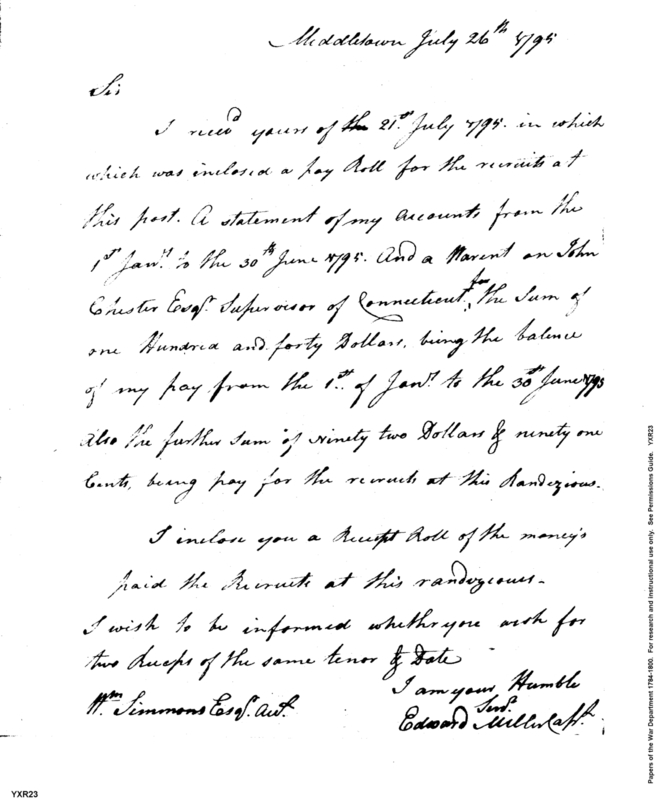 Middletown July 26th 1795
Sir
I reced yours of the 21st July 1795. in which
which was inclosed a pay Roll for the recruits at
this post. A statement of my accounts from the
1st Jany to the 30th June 1795. And a Warent on John
Chester Esqr Supervisor of Connecticut, for the Sum of
one Hundred and forty Dollars, being the balence
of my pay from the 1st of Jany to the 30th June 1795
Also the further sum of Ninety two Dollars & ninety one
Cents, being pay for the recruits at this Randezious.
I inclose you a Receipt Roll of the money's
paid the Recruits at this randezeous-
I wish to be informed whethr you wish for
two Receps of the same tenor & Date
I am your Humble
Servt
Wm Simmons Esqr. Act.
Edward Miller Capt.
Papers of the War Department 1784-1800. For research and instructional use only. See Permissions Guide. YXR23
YXR23